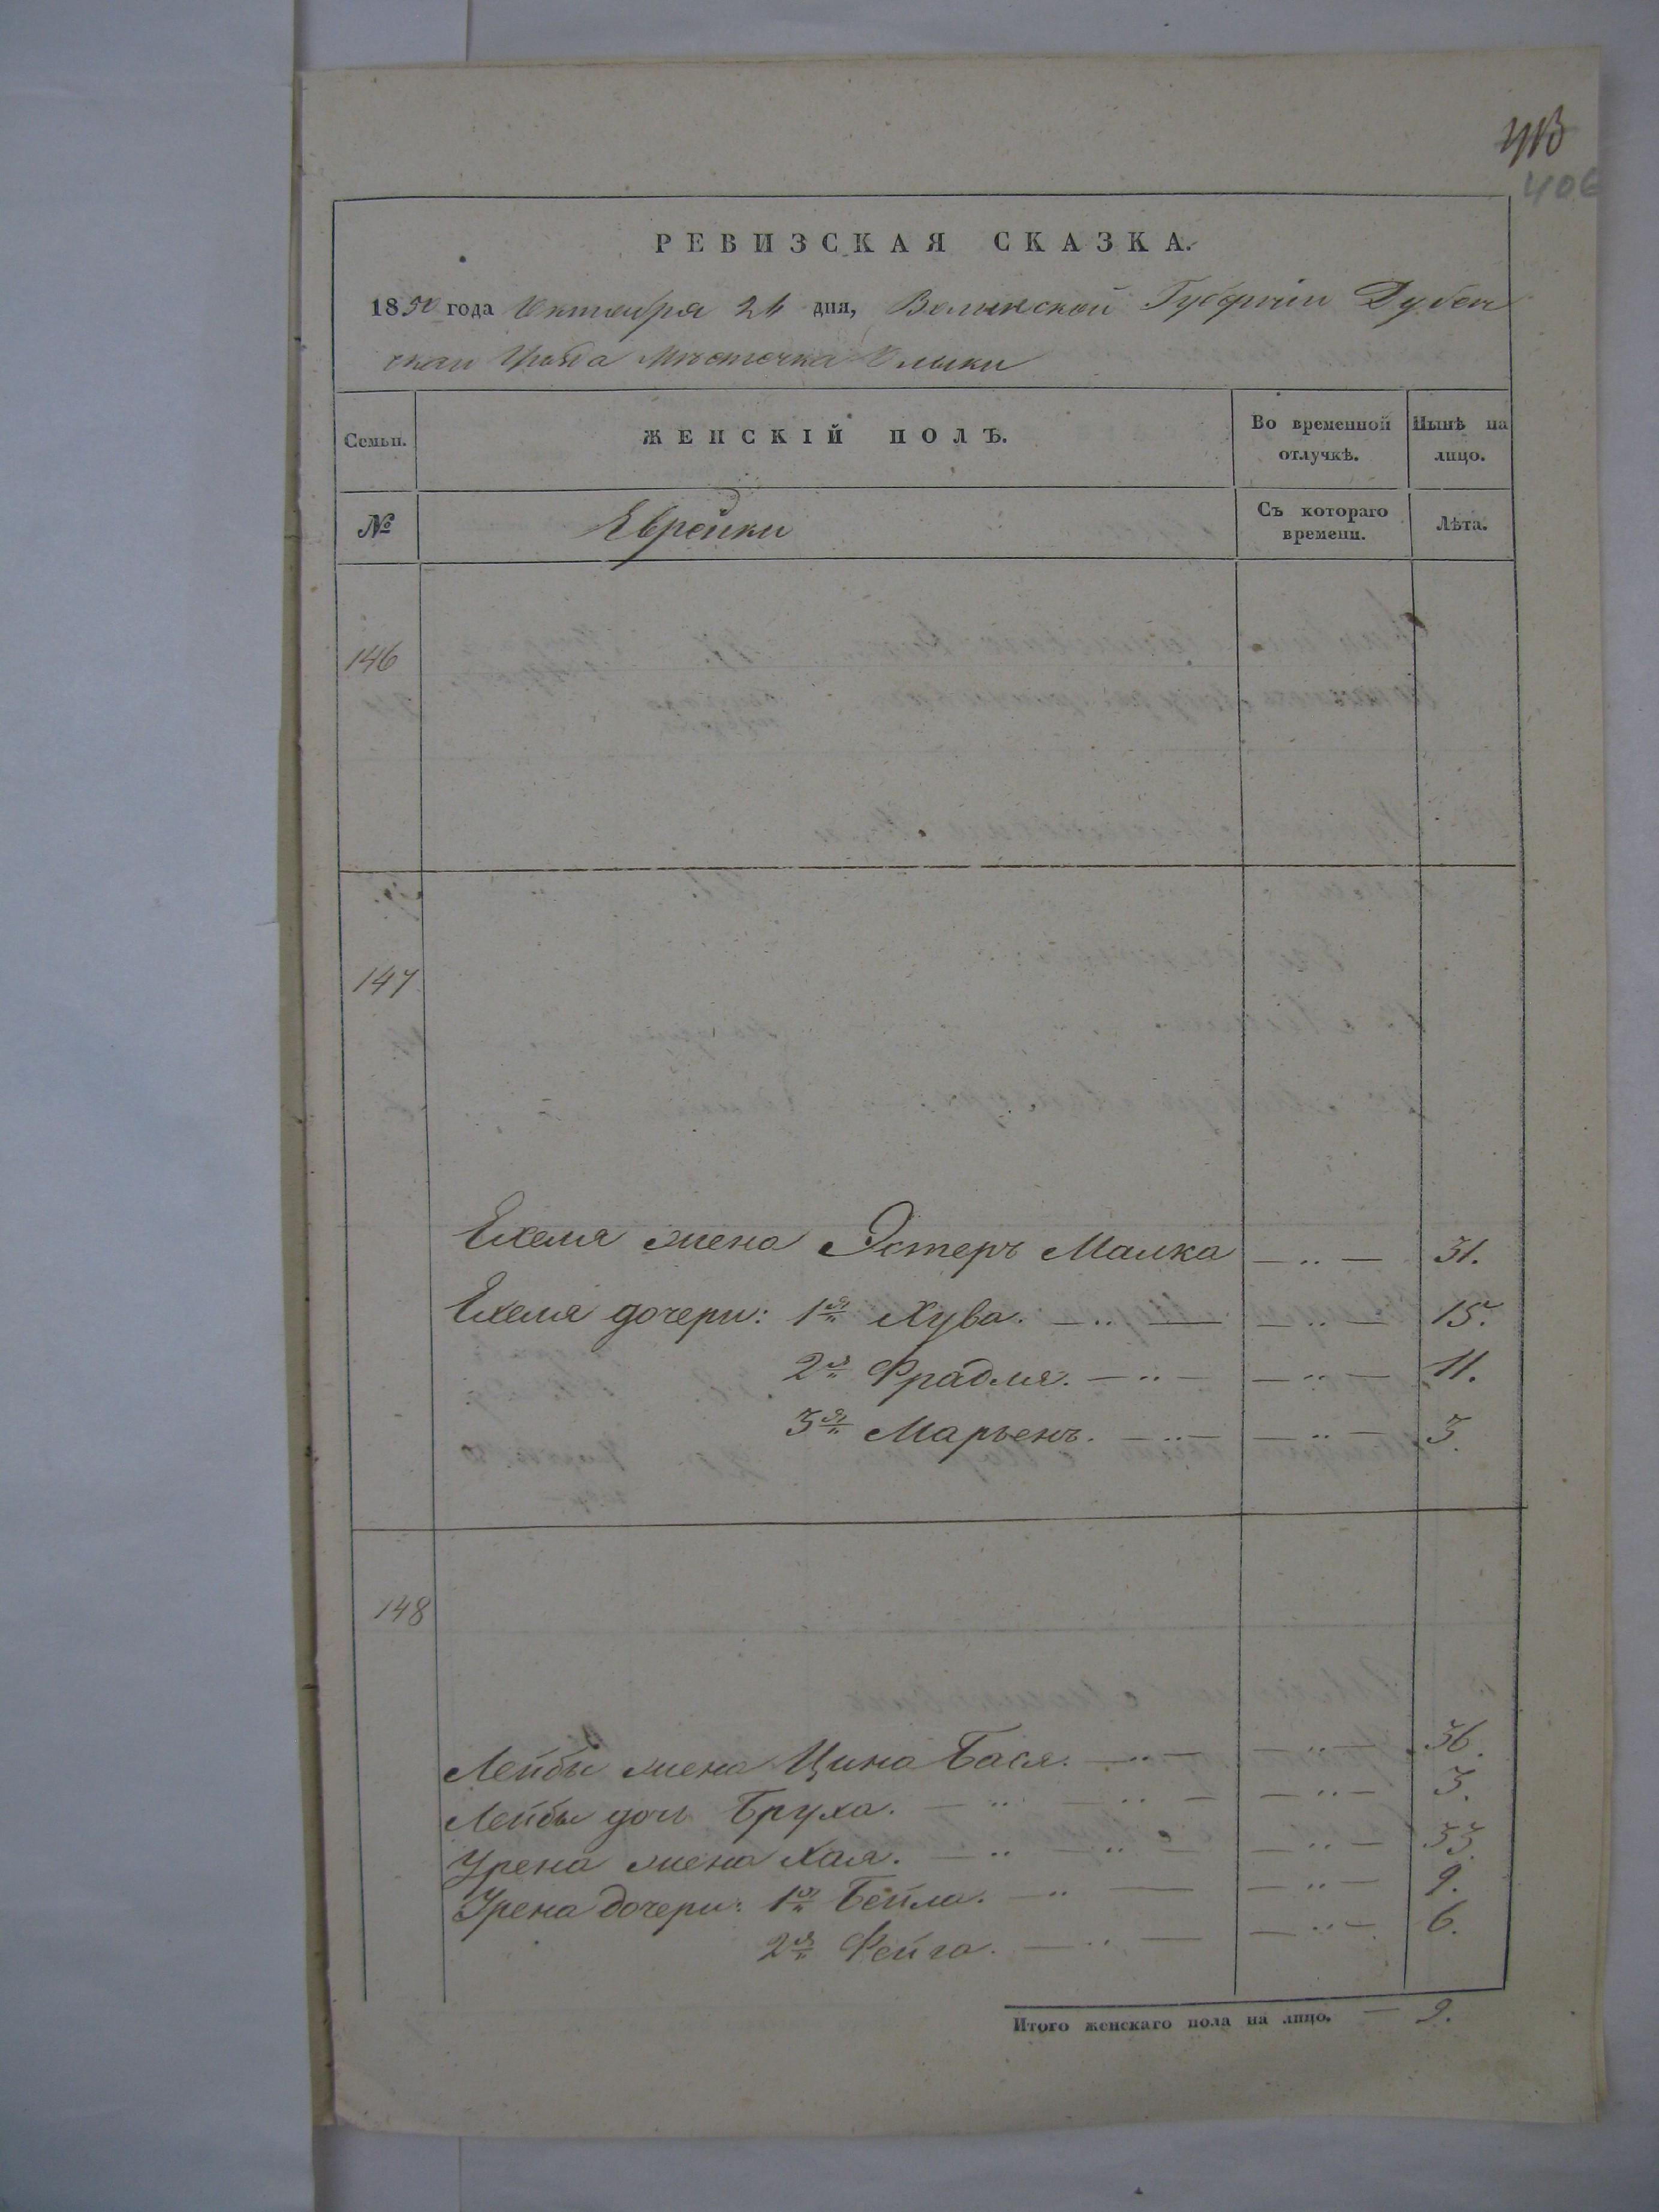 406
РЕВИЗСКАЯ СКАЗКА.
1850 года Октября 26 дня, Волынской Губерніи Дубен
скаи Уѣзда Мѣсточка Олыки
Семьи. ЖЕНСКІЙ ПОЛЪ. Во временной отлучкѣ. Нынѣ на лицо.
№ Еврейки Съ котораго времени. Лѣта.
146
147
Ехеля жена Эстеръ Малка — ״ — 31.
Ехеля дочери: 1я Хува. — ״ — — ״ — 15.
2я Фрадля. — ״ — — ״ — 11.
3я Марьемъ. — ״ — — ״ — 3.
148
Лейбы жена Цина Бася. — ״ — — ״ — 36.
Лейбы дочь Бруха. — ״ — ״ — — ״ — 3.
Урена жена Хая. — ״ — ״ — — ״ — 33.
Урена дочери: 1я Бейла. — ״ — — ״ — 9.
2я Фейга. — ״ — — ״ — 6.
Итого женскаго пола на лицо. — 9.